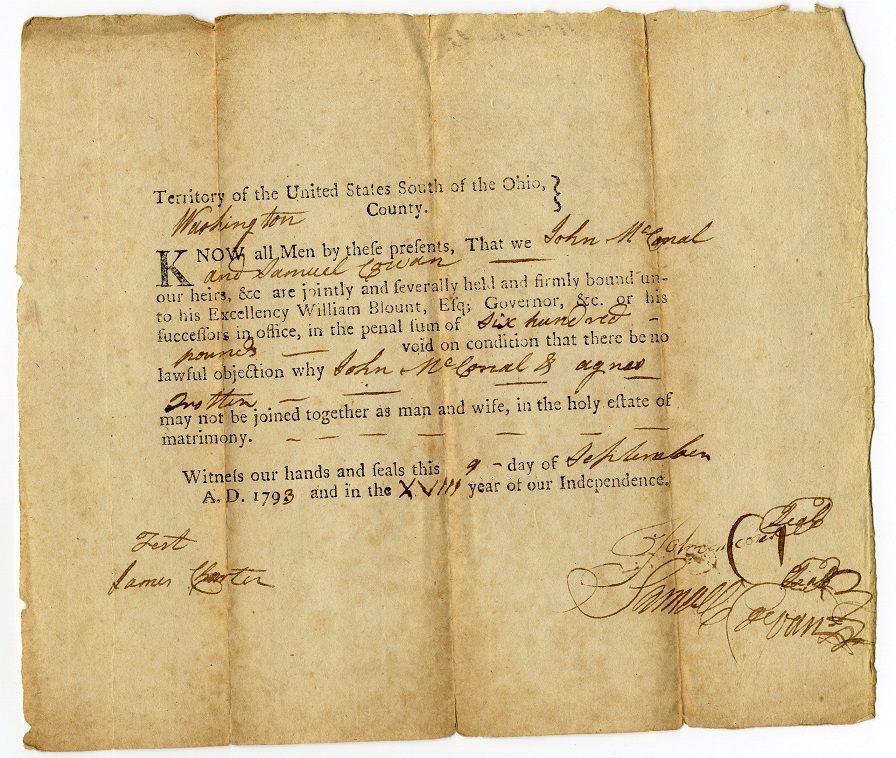 Territory of the United States South of the Ohio, }
Washington County.
KNOW all Men by theſe preſents, That we John McConal
and Samuel Cowan
our heirs, &c are jointly and ſeverally held and firmly bound un-
to his Excellency William Blount, Eſq; Governor, &c. or his
ſucceſſors in office, in the penal ſum of Six hundred -
pounds — void on condition that there be no
lawful objection why John McConal & agnes
Trotter — — —
may not be joined together as man and wife, in the holy eſtate of
matrimony. — — — — — — — —
Witneſs our hands and ſeals this 9 - day of September
A. D. 1793 and in the XVIII year of our Independence.
Test
James Carter
John Seal
Samuel Cowan Seal